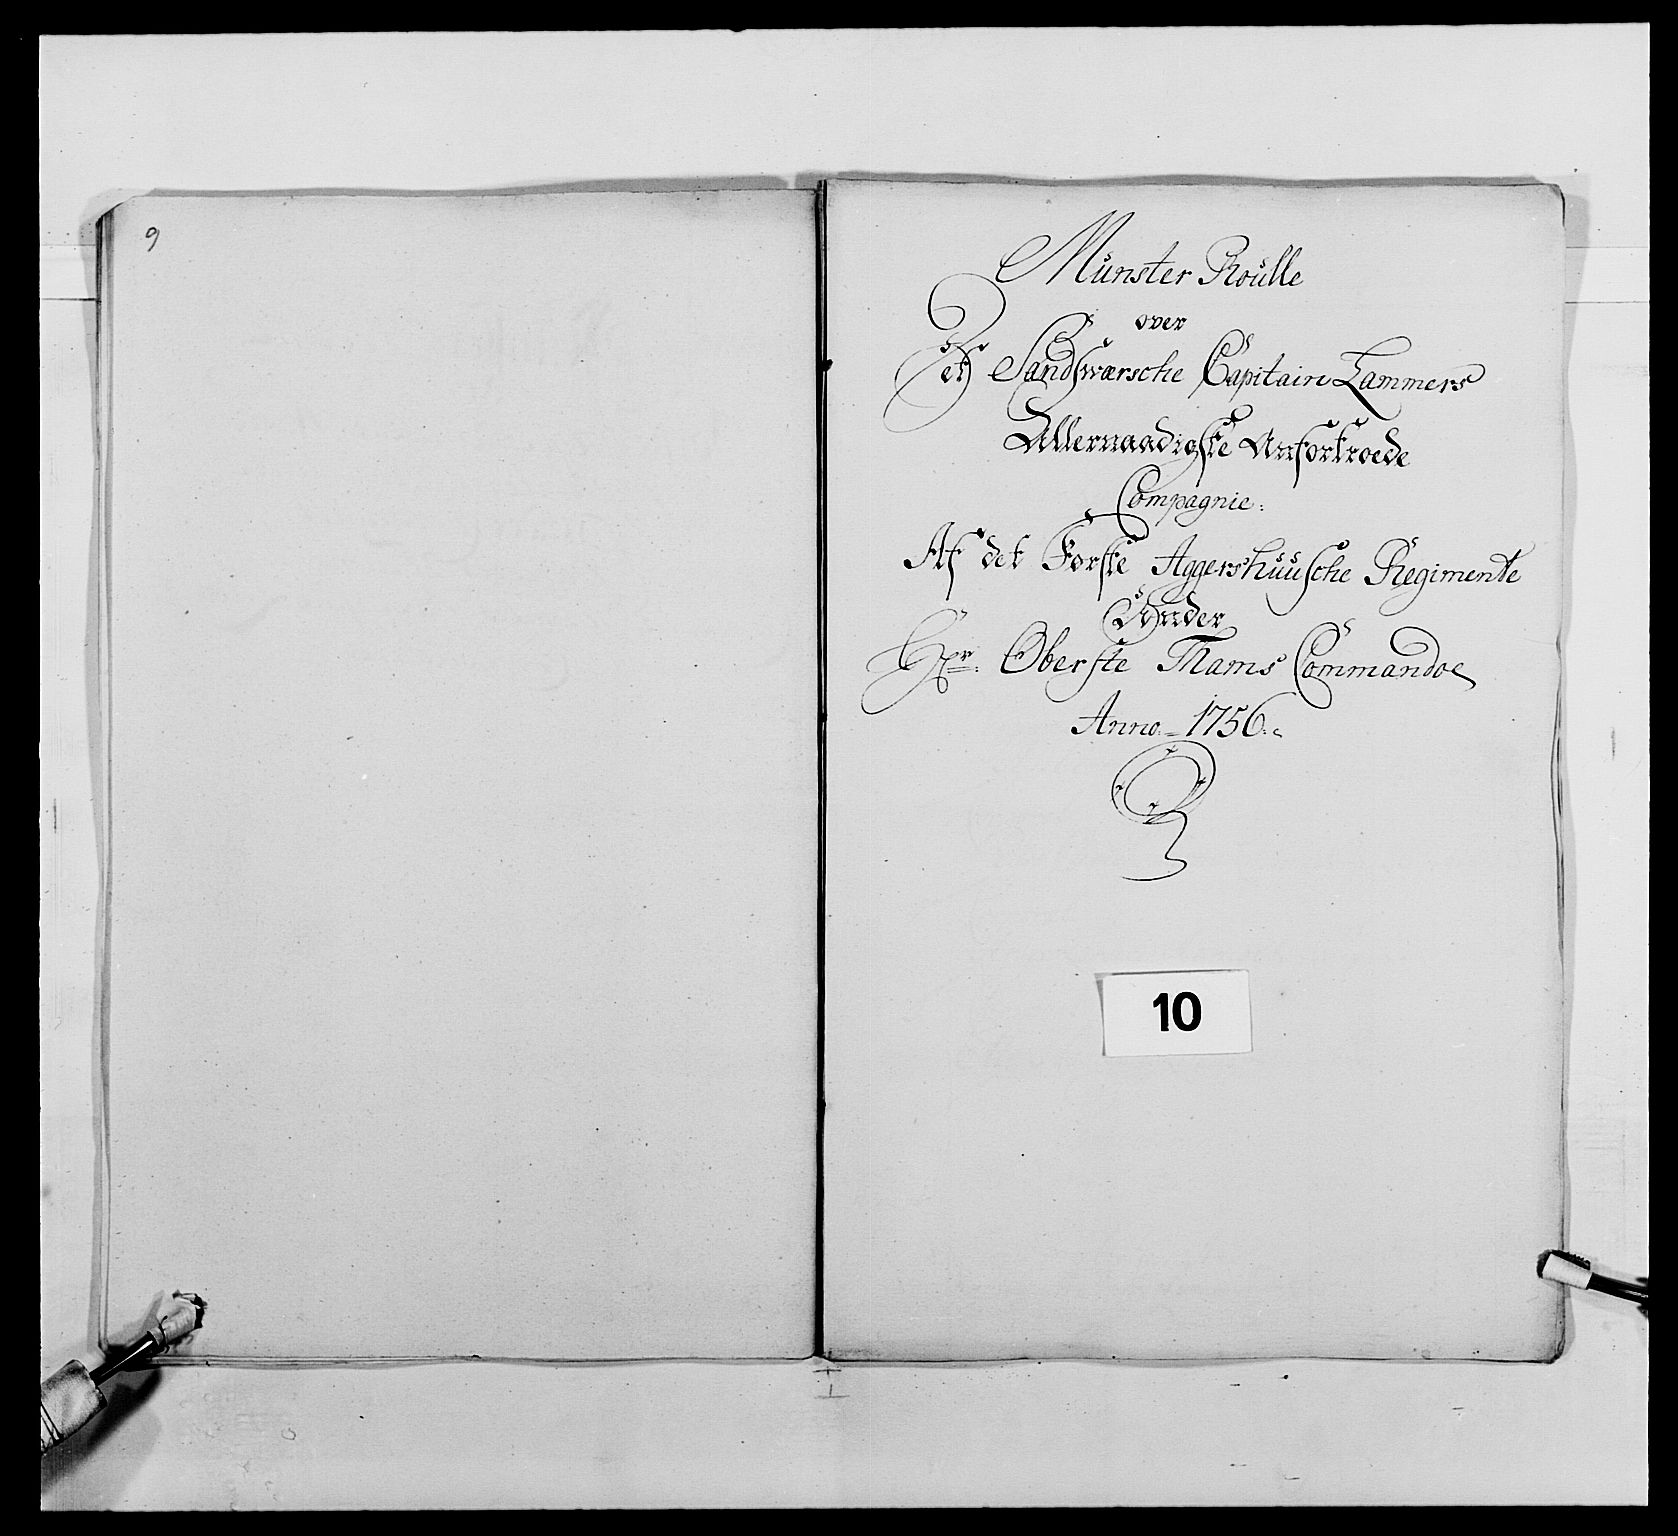 9
Münster Roülle
over
Det Sandsværsche Capitain Lammers
Allernaadigste Anfortroede
Compagnie:
Af det Første Aggershuusche Regimente
Under
Hr: Oberste Thams Commandoe
Anno - 1756.
10